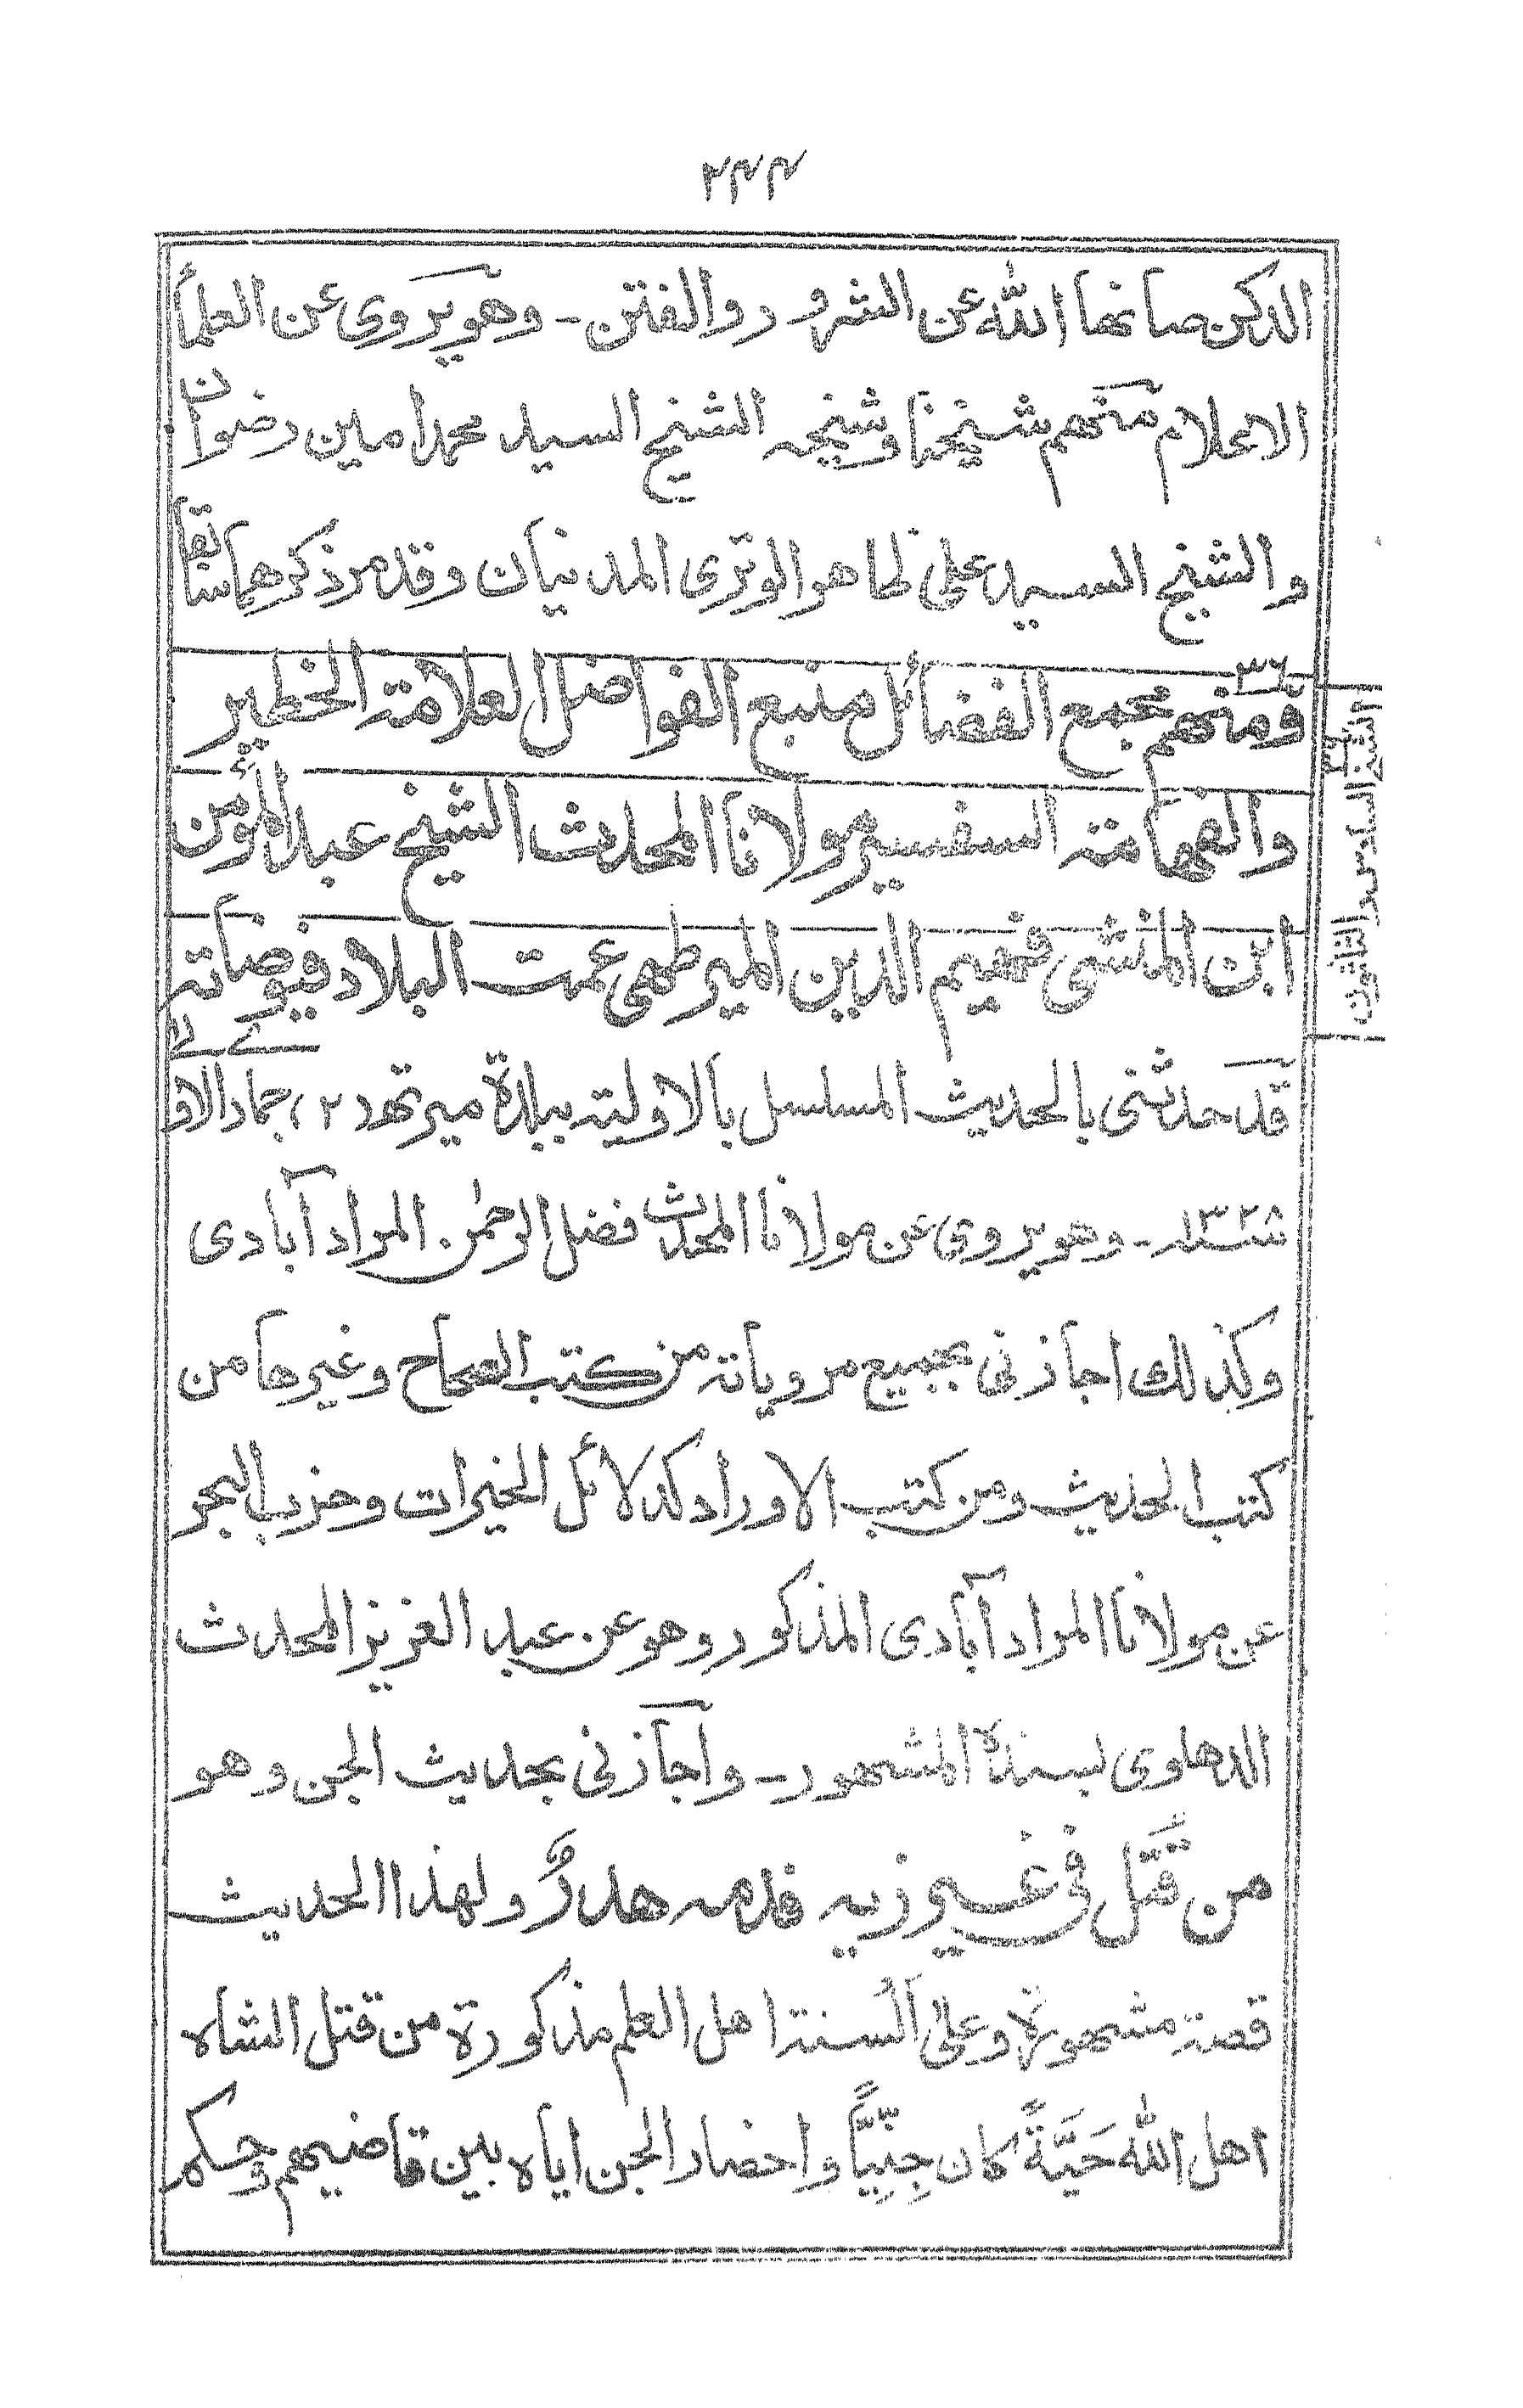 ۲۴۴
الدكن صانها الله عن الشرور والفتن - وهو يروى عن العلمأ
الاعلام منهم شيخنا وشيخه الشيخ السيد محمد امين رضوان
والشيخ السيد على ظاهر الوترى المدنيان وقد مر ذكرهما سابقا
۳۶
ومنهم مجمع الفضائل منبع الفواضل العلامة الخطير
والفهامة السفسير مولانا المحدث الشيخ عبد المؤمن
ابن المنشى فهيم الدين الميرطهى عمت البلاد فيوضاته
قد حدثنى بالحديث المسلسل بالاولية ببلدة ميرتهه ۲۲ جماد الاولى
۱۳۲۸ - وهو يروى عن مولانا المحدث فضل الرحمٰن المراد آبادى
وكذلك اجازنى بجميع مروياته من كتب الصحاح وغيرها من
كتب الحديث ومن كتب الاوراد كدلائل الخيرات وحزب البحر
عن مولانا المراد آبادى المذكور وهو عن عبد العزيز المحدث
الدهلوى بسنده المشهور - وآجازنى بحديث الجن وهو
من قُتل فى غير زيه فدمه هدرٌ ولهذا الحديث
قصة مشهورة وعلى السنة اهل العلم مذكورة من قتل الشاه
اهل الله حَيَّةً كان جِنِّيًّا واحضار الجن اياه بين قاضيهم وحكم
الشيخ السادس والثلثون